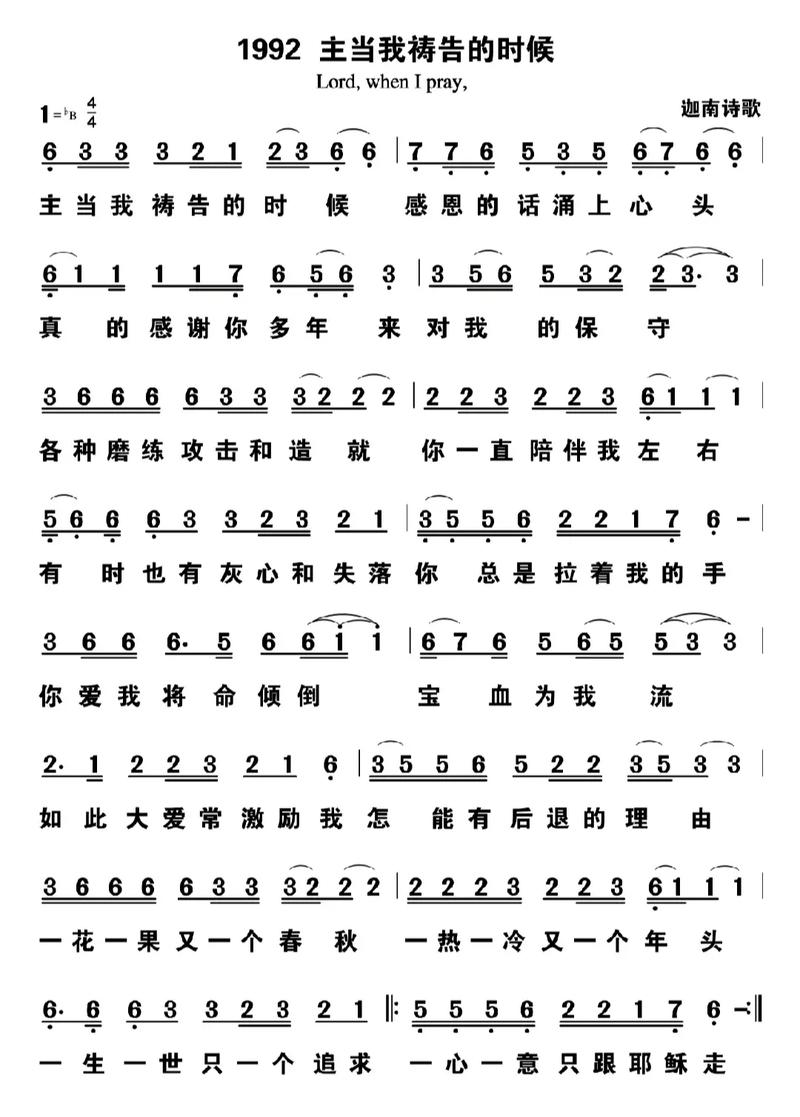 1992 主当我祷告的时候
Lord, when I pray,
1=♭B 4/4
迦南诗歌
6 3 3 3 2 1 2 3 6 6 | 7 7 6 5 3 5 6 7 6 6 |
主当我祷告的时候 感恩的话涌上心头
6 1 1 1 1 7 6 5 6 3 | 3 5 6 5 3 2 2 3· 3 |
真的感谢你多年来对我的保守
3 6 6 6 6 3 3 3 2 2 2 | 2 2 3 2 2 3 6 1 1 1 |
各种磨练攻击和造就 你一直陪伴我左右
5 6 6 6 3 3 2 3 2 1 | 3 5 5 6 2 2 1 7 6 – |
有时也有灰心和失落你总是拉着我的手
3 6 6 6· 5 6 6 1 1 | 6 7 6 5 6 5 5 3 3 |
你爱我将命倾倒 宝血为我流
2· 1 2 2 3 2 1 6 | 3 5 5 6 5 2 2 3 5 3 3 |
如此大爱常激励我怎能有后退的理由
3 6 6 6 6 3 3 3 2 2 2 | 2 2 2 3 2 2 3 6 1 1 1 |
一花一果又一个春秋 一热一冷又一个年头
6· 6 6 3 3 2 3 2 1 ‖: 5 5 5 6 2 2 1 7 6 – :‖
一生一世只一个追求 一心一意只跟耶稣走